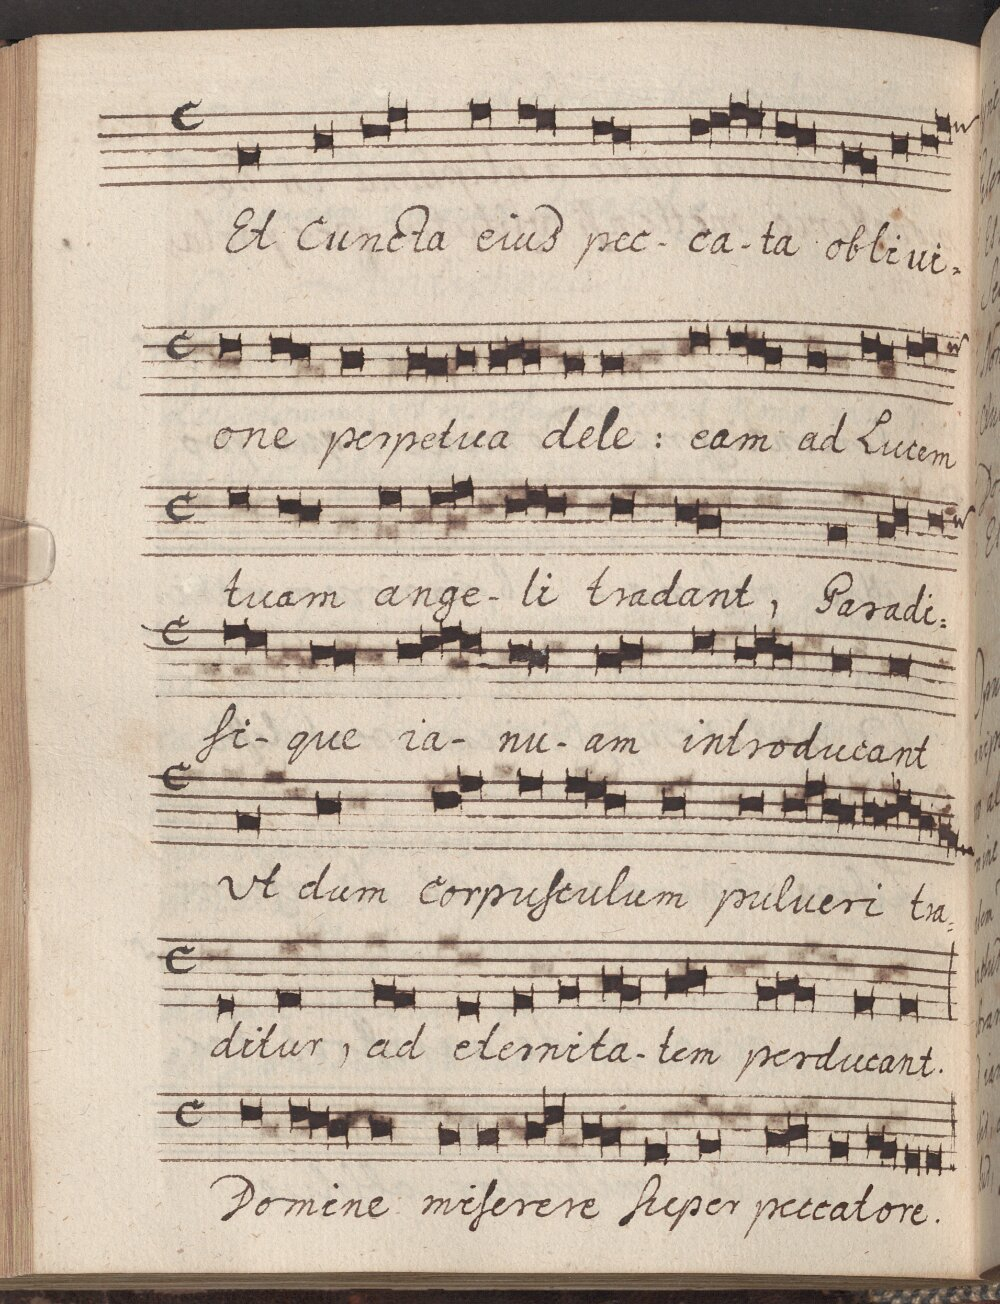 Et Cuncta eius pec-ca-ta oblivi-
one perpetua dele: eam ad Lucem
tuam ange-li tradant, Paradi-
si-que ia-nu-am introducant
Ut dum corpusculum pulueri tra-
ditur, ad eternita-tem perducant.
Domine miserere super peccatore.